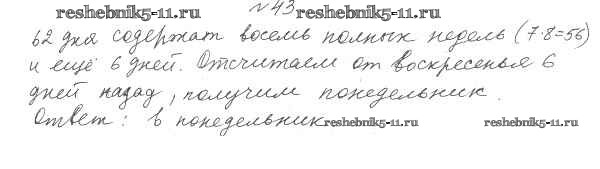 reshebnik5-11.ru №43 reshebnik5-11.ru
62 дня содержат восемь полных недель (7·8=56)
и ещё 6 дней. Отсчитаем от воскресенья 6
дней назад, получим понедельник.
Ответ: в понедельник reshebnik5-11.ru reshebnik5-11.ru